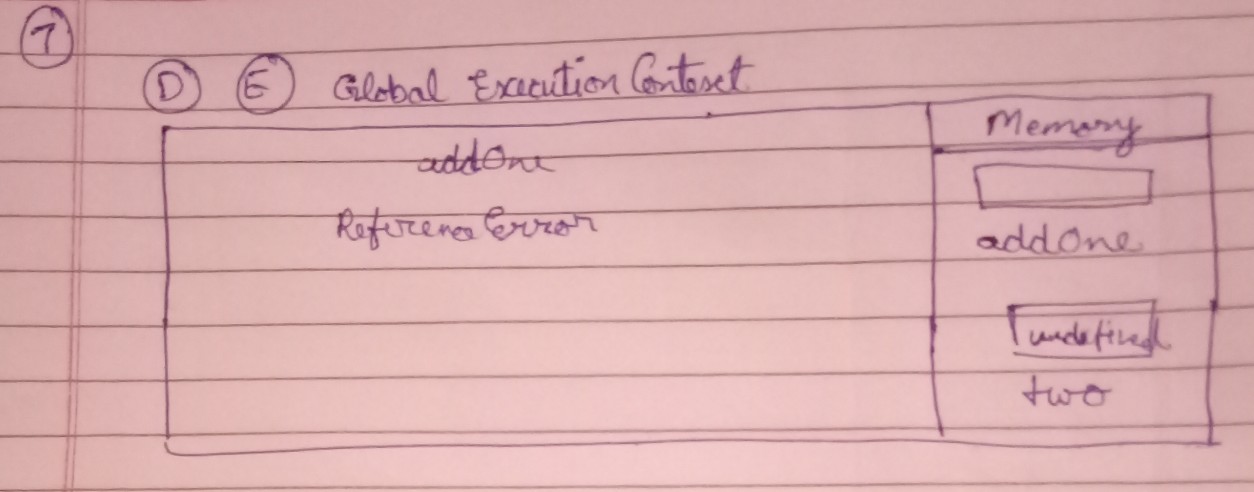 7
D E Global Execution Context
Memory
addOne
Reference Error
addOne
undefined
two